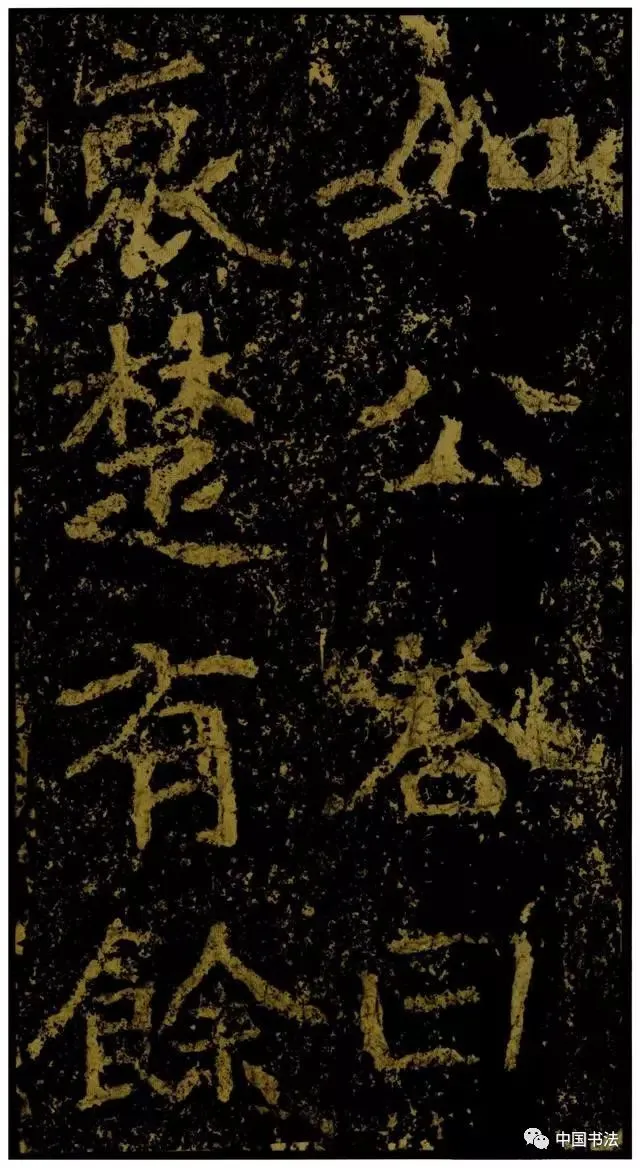 如公答曰
哀楚有餘
中国书法